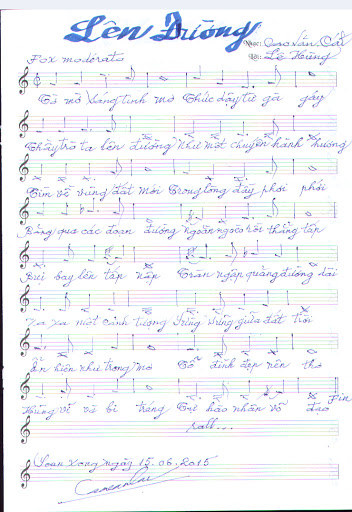 Lên Đường
Nhạc: Cao Văn
Lời: Lê Hùng
Fox moderato
Tờ mờ sáng tinh mơ Thức dậy từ gà gáy
Thầy trò ta lên đường Như một chuyến hành hương
Tìm về vùng đất mới Trong lòng đầy phơi phới
Băng qua các đoạn đường ngoằn ngoèo rồi thẳng tắp
Bụi bay lên tấp nập Tràn ngập quảng đường dài
Xa xa một cảnh tượng Trùng trùng giữa đất trời
Ẩn hiện như trong mơ Cổ đình đẹp nên thơ
Hùng vĩ và bi tráng Tự hào nhân võ đạo
Fin
rall...
Soạn xong ngày 15.06.2015